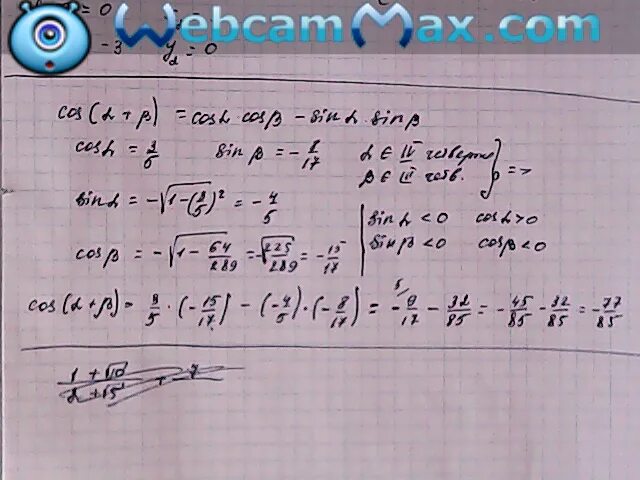 WebcamMax.com
= 0
- 3 y₂ = 0
cos(α + β) = cosα · cosβ - sinα · sinβ
cosα = 3/5 sinβ = - 8/17 α ∈ IV четверти
β ∈ III четв. } =>
sinα = -√(1-(3/5)²) = - 4/5
sinα < 0 cosα > 0
sinβ < 0 cosβ < 0
cosβ = -√(1 - 64/289) = -√(225/289) = - 15/17
cos(α + β) = 3/5 · (- 15/17) - (- 4/5) · (- 8/17) = - 9/17 - 32/85 = - 45/85 - 32/85 = - 77/85